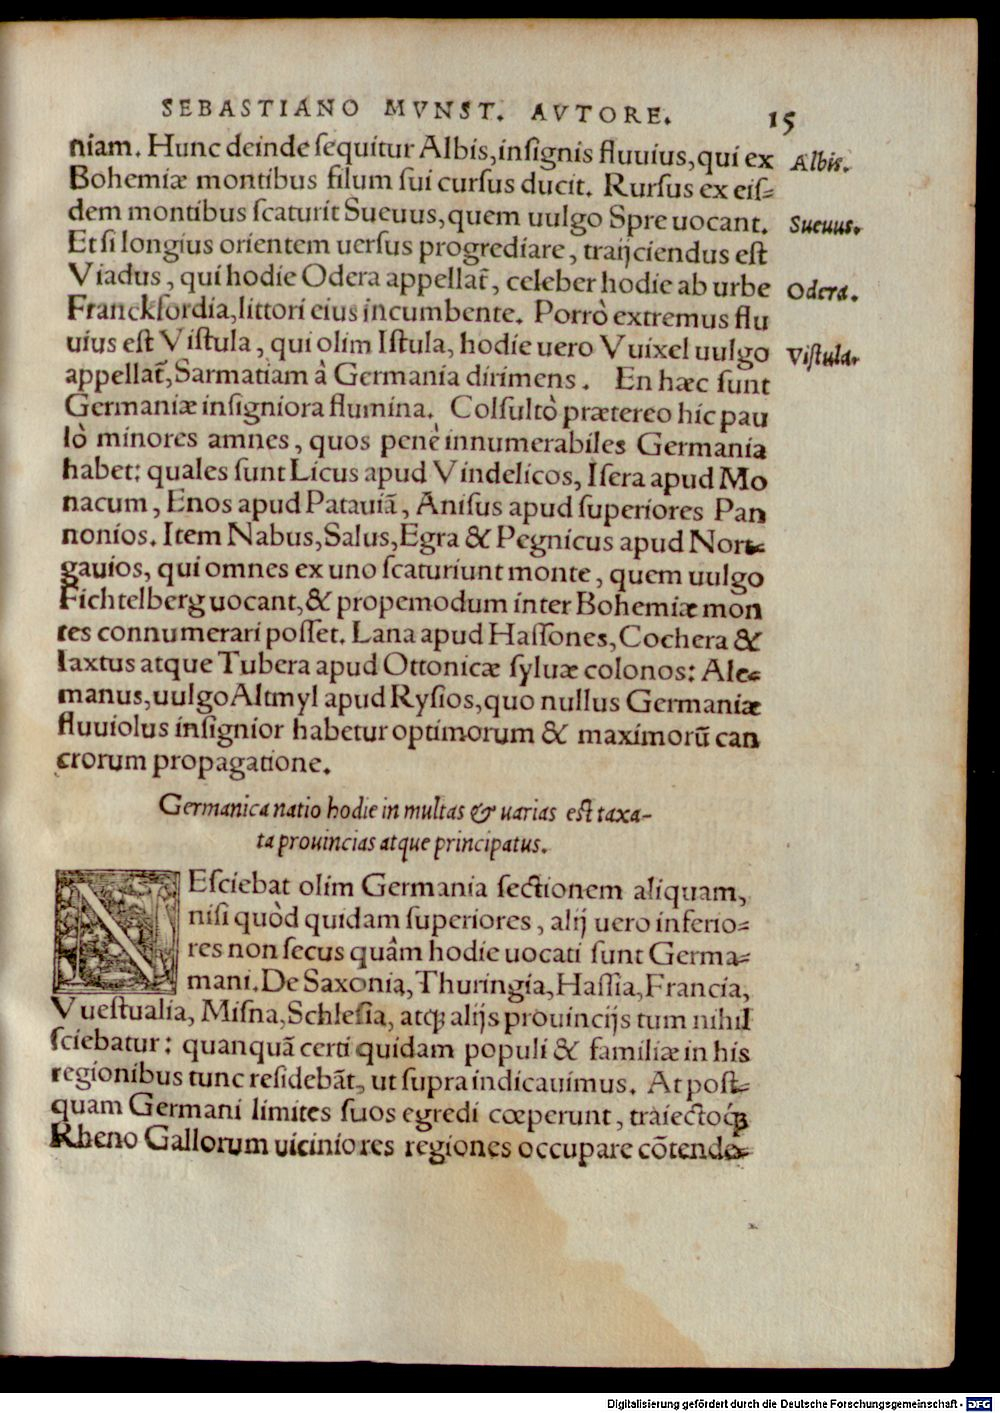 SEBASTIANO MVNST. AVTORE. 15
niam. Hunc deinde ſequitur Albis, inſignis fluuius, qui ex
Albis.
Bohemiæ montibus filum ſui curſus ducit. Rurſus ex eiſ-
dem montibus ſcaturit Sueuus, quem uulgo Spre uocant.
Sueuus.
Et ſi longius orientem uerſus progrediare, traijciendus eſt
Viadus, qui hodie Odera appellat᷑, celeber hodie ab urbe
Odera.
Franckfordia, littori eius incumbente. Porrò extremus flu
uius eſt Viſtula, qui olim Iſtula, hodie uero Vuixel uulgo
Viſtula.
appellat᷑, Sarmatiam â Germania dirimens. En hæc ſunt
Germaniæ inſigniora flumina. Colſultò prætereo hic pau
lò minores amnes, quos penè innumerabiles Germania
habet: quales ſunt Licus apud Vindelicos, Iſera apud Mo
nacum, Enos apud Patauiã, Aniſus apud ſuperiores Pan
nonios. Item Nabus, Salus, Egra & Pegnicus apud Nort-
gauios, qui omnes ex uno ſcaturiunt monte, quem uulgo
Fichtelberg uocant, & propemodum inter Bohemiæ mon
tes connumerari poſſet. Lana apud Haſſones, Cochera &
Iaxtus atque Tubera apud Ottonicæ ſyluæ colonos: Ale-
manus, uulgo Altmyl apud Ryſios, quo nullus Germaniæ
fluuiolus inſignior habetur optimorum & maximorũ can
crorum propagatione.
Germanica natio hodie in multas & uarias eſt taxa-
ta prouincias atque principatus.
NEſciebat olim Germania ſectionem aliquam,
niſi quòd quidam ſuperiores, alij uero inferio-
res non ſecus quâm hodie uocati ſunt Germa-
mani. De Saxonia, Thuringia, Haſſia, Francia,
Vueſtualia, Miſna, Schleſia, atqꝫ alijs prouincijs tum nihil
ſciebatur: quanquã certi quidam populi & familiæ in his
regionibus tunc reſidebãt, ut ſupra indicauimus. At poſt-
quam Germani limites ſuos egredi cœperunt, traiectoq́ꝫ
Rheno Gallorum uiciniores regiones occupare cõtende-
Digitalisierung gefördert durch die Deutsche Forschungsgemeinschaft - DFG